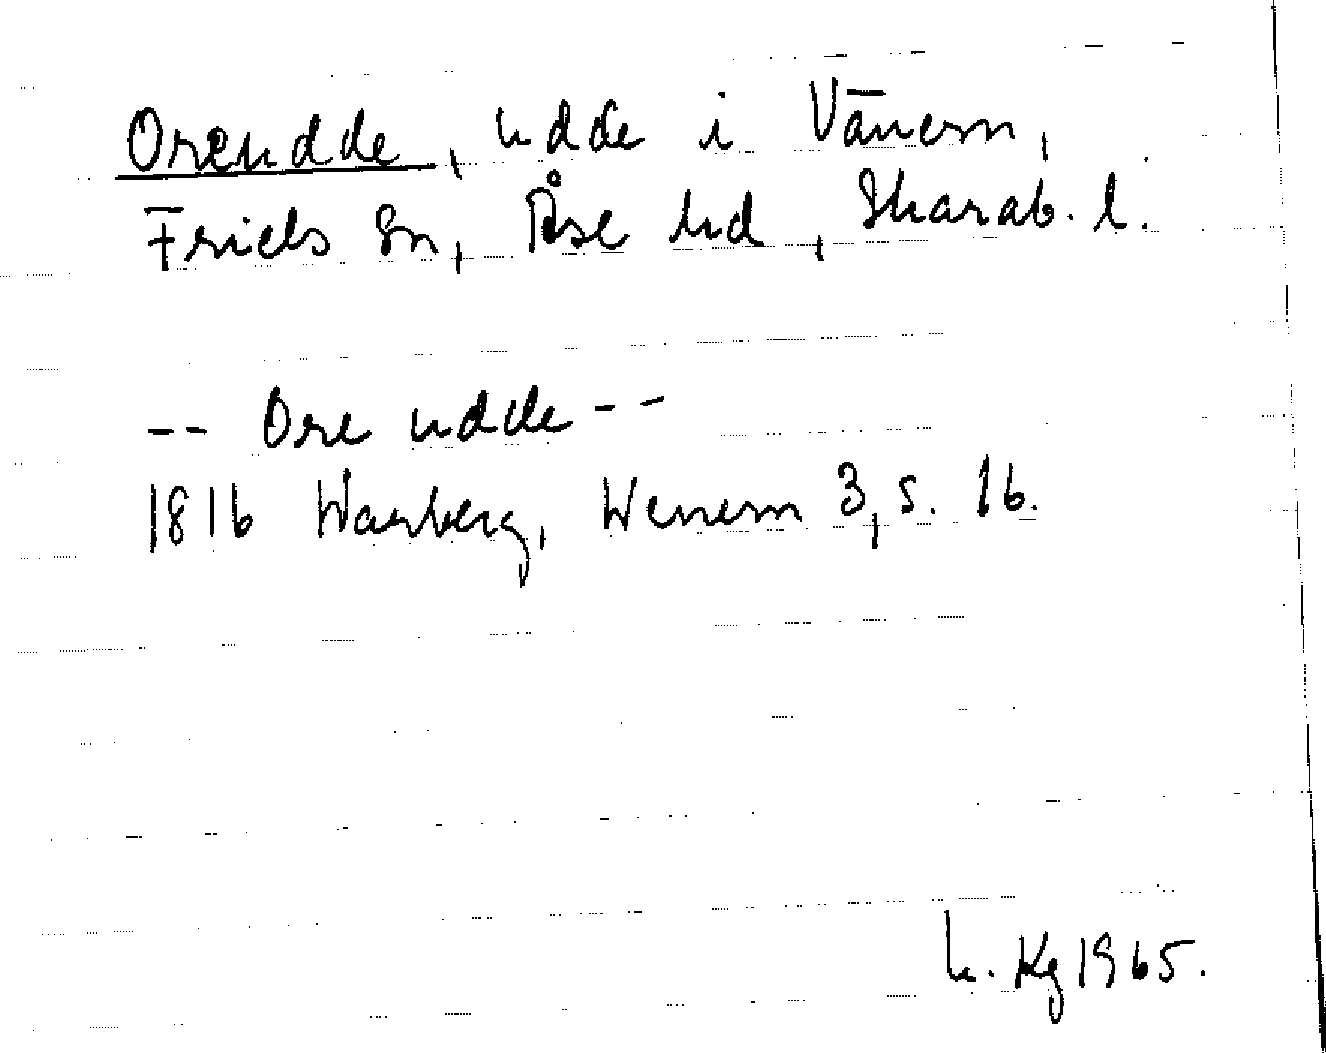 Oreudde, udde i Vänern,
Friels sn, Åse hd, Skarab. l.
-- Ore udde --
1816 Warberg, Wenern 3, s. 16.
Kg 1965.